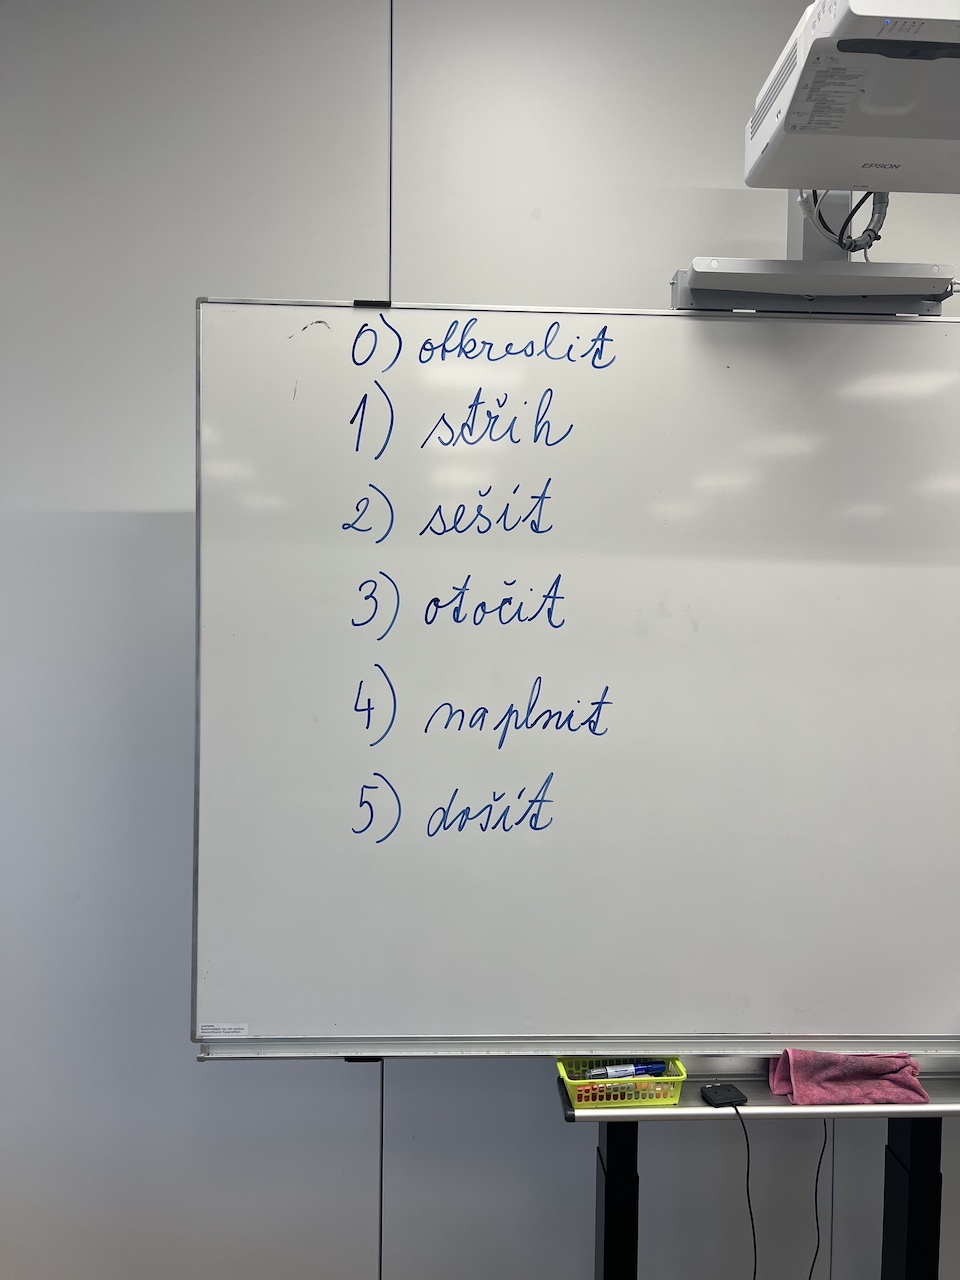 EPSON
0) obkreslit
1) střih
2) sešít
3) otočit
4) naplnit
5) došít